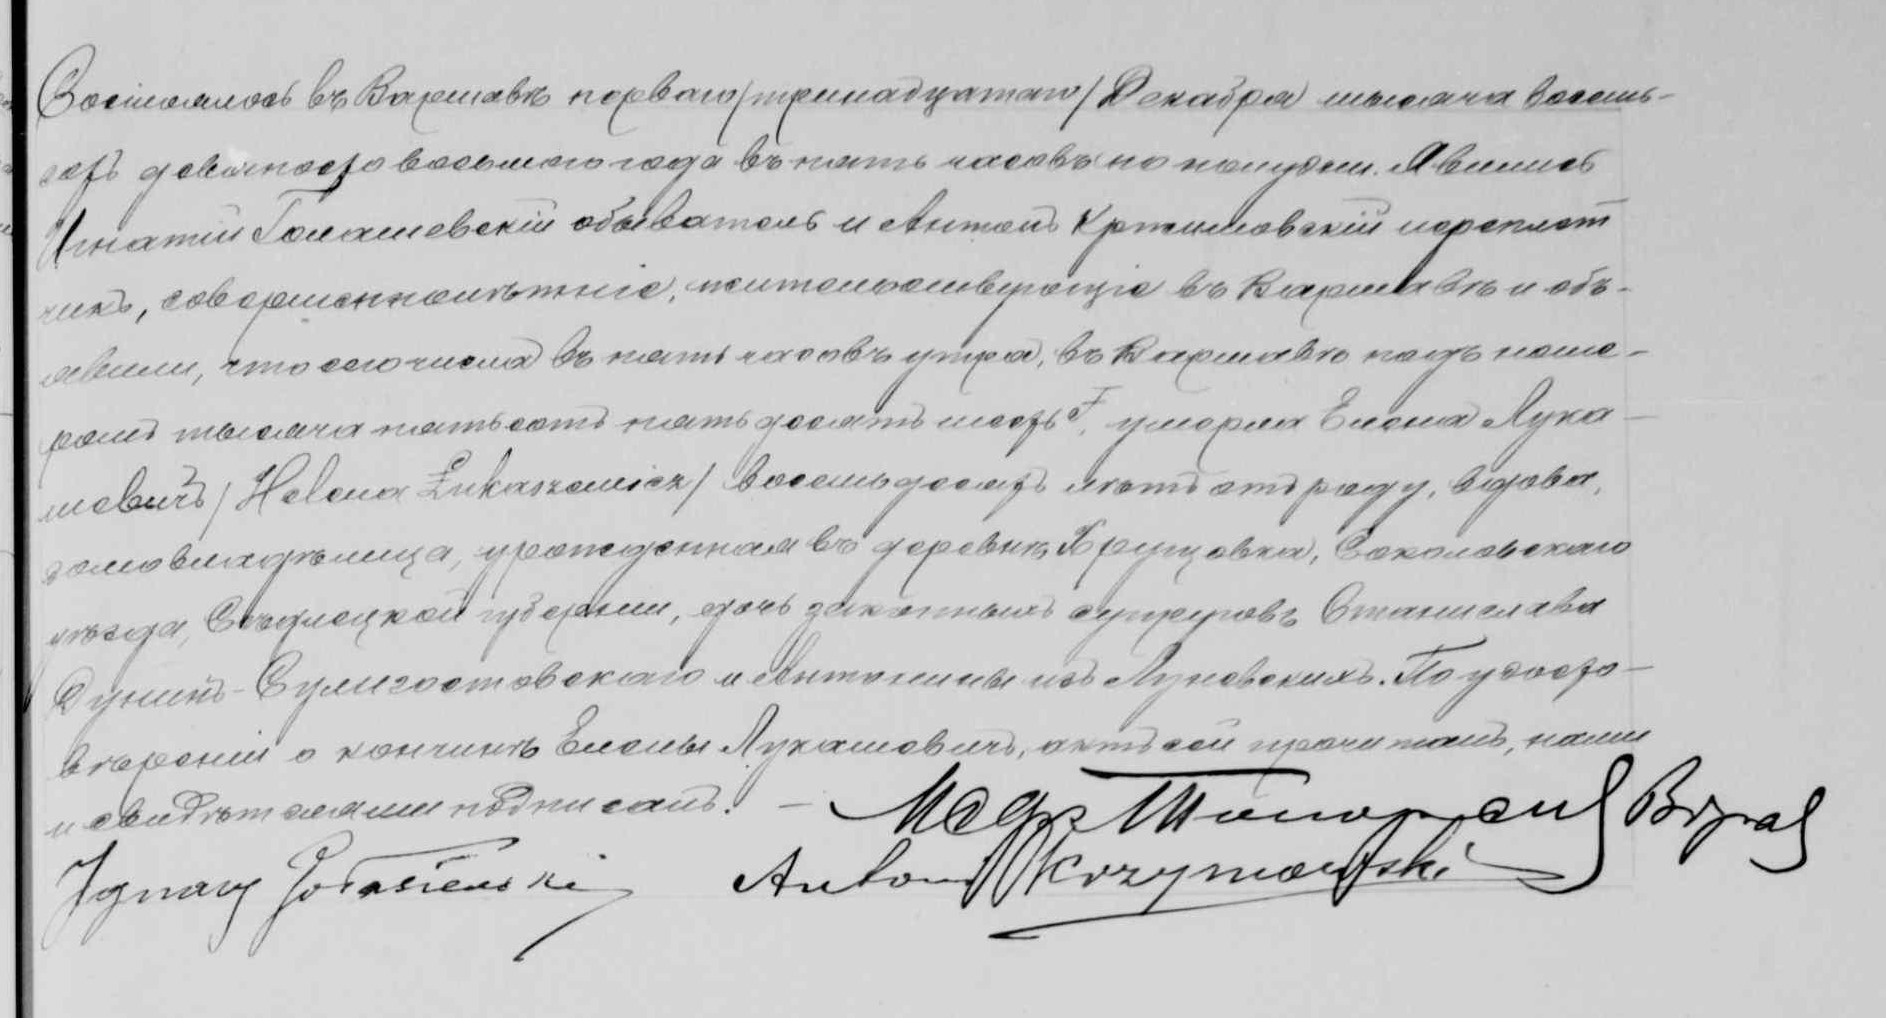 Состоялось въ Варшавѣ перваго /тринадцатаго/ Декабря тысяча восемь-
сотъ девяносто восьмого года въ пять часовъ по полудни. Явились
Игнатій Голашевскій обыватель и Антонъ Кржимовскій переплет
чикъ, совершеннолѣтніе, жительствующіе въ Варшавѣ и объ-
явили, что сего числа въ пять часовъ утра, въ Варшавѣ подъ номе-
ромъ тысяча пятьсотъ пятьдесятъ шесть F, умерла Елена Лука-
шевичъ /Helena Łukaszewicz/ восемьдесятъ лѣтъ отъ роду, вдова,
домовладѣлица, урожденная въ деревнѣ Хрущевка, Соколовскаго
уѣзда, Сѣдлецкой губерніи, дочь законныхъ супруговъ Станислава
Дунинъ-Сулигостовскаго и Антонины изъ Луневскихъ. По удосто-
вѣреніи о кончинѣ Елены Лукашевичъ, актъ сей прочитанъ, нами
и свидѣтелями подписанъ. —
Ignacy Gołaszewski Antoni Krzymowski